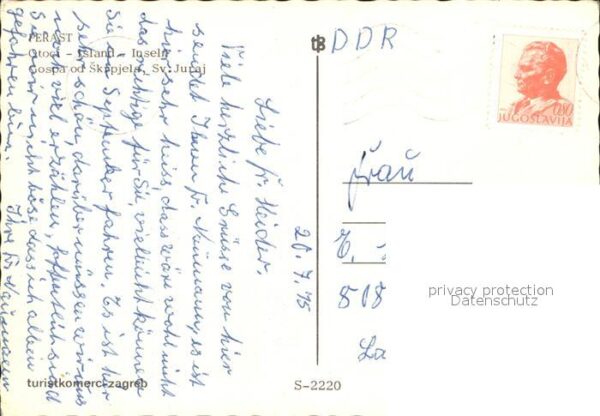 PERAST
Otoci - Island - Inseln
Gospa od Škrpjela, Sv. Juraj
Liebe Fr. Heider.
Viele herzliche Grüsse von hier
sendet Ihnen Fr. Neumann, es ist
hier sehr heiss, das wäre wohl nicht
das richtige für Sie, vielleicht können
Sie im September fahren. Es ist hier
sehr schön, darüber müssen wir uns
noch viel erzählen, hoffentlich sind
Sie mir nicht böse dass ich allein
gefahren bin.
Ihre Fr. Neumann
20.7.75
DDR
Frau
508
La
0,80
JUGOSLAVIJA
privacy protection
Datenschutz
turistkomerc-zagreb
S-2220